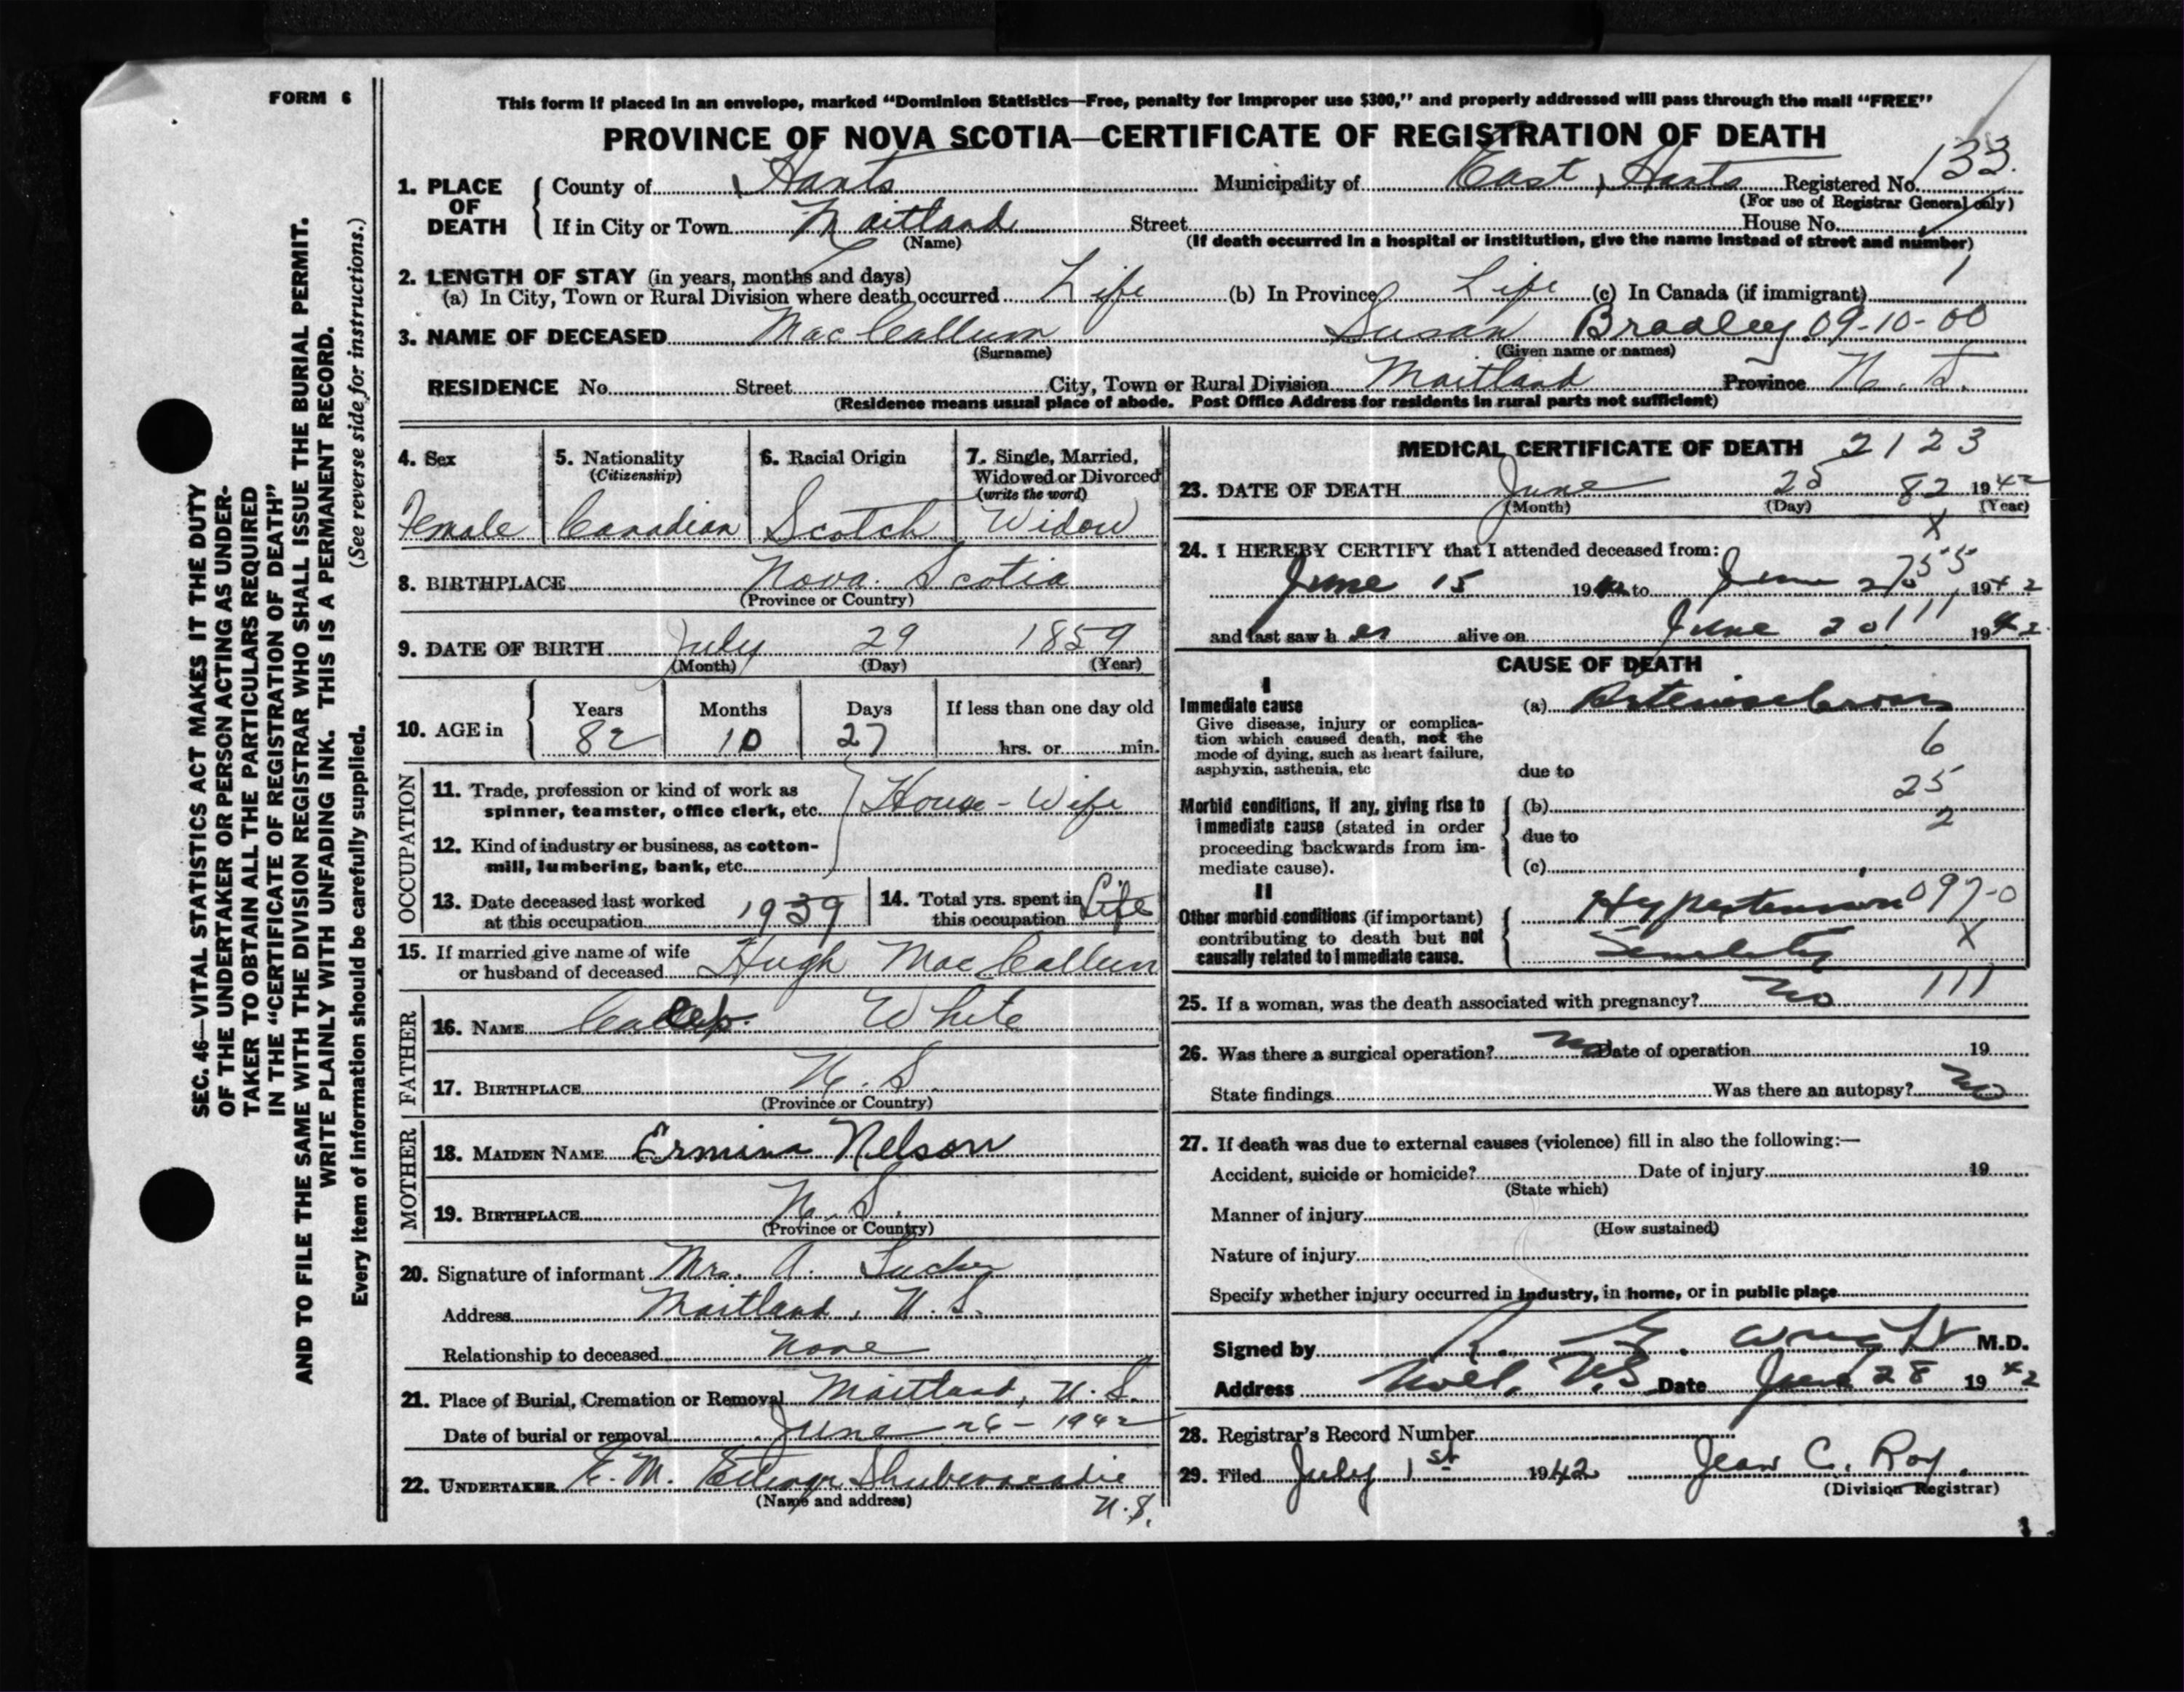 FORM 6
This form if placed in an envelope, marked “Dominion Statistics—Free, penalty for improper use $300,” and properly addressed will pass through the mail “FREE”
PROVINCE OF NOVA SCOTIA—CERTIFICATE OF REGISTRATION OF DEATH
1. PLACE OF DEATH County of Hants Municipality of East Hants Registered No. 133.
(For use of Registrar General only)
If in City or Town Maitland Street House No.
(Name) (If death occurred in a hospital or institution, give the name instead of street and number)
2. LENGTH OF STAY (in years, months and days) 1
(a) In City, Town or Rural Division where death occurred Life (b) In Province Life (c) In Canada (if immigrant)
3. NAME OF DECEASED MacCallum Susan Bradley 09-10-00
(Surname) (Given name or names)
RESIDENCE No. Street City, Town or Rural Division Maitland Province N. S.
(Residence means usual place of abode. Post Office Address for residents in rural parts not sufficient)
4. Sex 5. Nationality (Citizenship) 6. Racial Origin 7. Single, Married, Widowed or Divorced (write the word)
Female Canadian Scotch Widow
8. BIRTHPLACE Nova Scotia
(Province or Country)
9. DATE OF BIRTH July 29 1859
(Month) (Day) (Year)
10. AGE in Years Months Days If less than one day old
82 10 27 hrs. or min.
OCCUPATION
11. Trade, profession or kind of work as
spinner, teamster, office clerk, etc. House-Wife
12. Kind of industry or business, as cotton-
mill, lumbering, bank, etc.
13. Date deceased last worked
at this occupation 1939
14. Total yrs. spent in
this occupation Life
15. If married give name of wife
or husband of deceased Hugh MacCallum
FATHER
16. NAME White
17. BIRTHPLACE N. S.
(Province or Country)
MOTHER
18. MAIDEN NAME Ermina Nelson
19. BIRTHPLACE N. S.
(Province or Country)
20. Signature of informant Mrs. A.
Address Maitland, N. S.
Relationship to deceased None
21. Place of Burial, Cremation or Removal Maitland, N. S.
Date of burial or removal June 26 - 1942
22. UNDERTAKER F. M. Shubenacadie
(Name and address) N. S.
MEDICAL CERTIFICATE OF DEATH 2123
23. DATE OF DEATH June 25 82 1942
(Month) (Day) (Year)
X
24. I HEREBY CERTIFY that I attended deceased from: 755
June 15 1942 to June 1942
and last saw her alive on June 20 111 1942
CAUSE OF DEATH
I
Immediate cause (a) Arteriosclerosis
Give disease, injury or complica-
tion which caused death, not the 6
mode of dying, such as heart failure,
asphyxia, asthenia, etc due to
25
Morbid conditions, if any, giving rise to (b)
immediate cause (stated in order 2
proceeding backwards from im- due to
mediate cause). (c)
II
Other morbid conditions (if important) Hypertension 097-0
contributing to death but not X
causally related to immediate cause. Senility
25. If a woman, was the death associated with pregnancy? no 111
26. Was there a surgical operation? no Date of operation 19
State findings Was there an autopsy? no
27. If death was due to external causes (violence) fill in also the following:—
Accident, suicide or homicide? Date of injury 19
(State which)
Manner of injury
(How sustained)
Nature of injury
Specify whether injury occurred in industry, in home, or in public place
Signed by R. E. Wright M.D.
Address Noel, N.S Date June 28 1942
28. Registrar's Record Number
29. Filed July 1st 1942 Jean C. Roy.
(Division Registrar)
SEC. 46—VITAL STATISTICS ACT MAKES IT THE DUTY
OF THE UNDERTAKER OR PERSON ACTING AS UNDER-
TAKER TO OBTAIN ALL THE PARTICULARS REQUIRED
IN THE “CERTIFICATE OF REGISTRATION OF DEATH”
AND TO FILE THE SAME WITH THE DIVISION REGISTRAR WHO SHALL ISSUE THE BURIAL PERMIT.
WRITE PLAINLY WITH UNFADING INK. THIS IS A PERMANENT RECORD.
Every item of information should be carefully supplied. (See reverse side for instructions.)